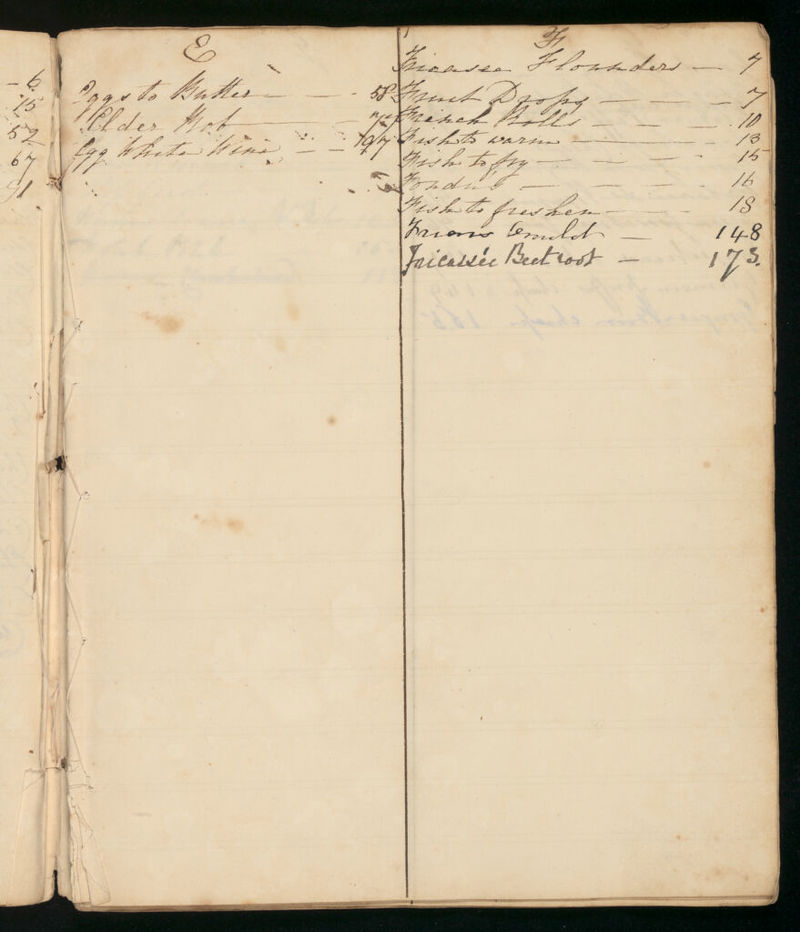 6
15
52
67
91
E
Eggs to Butter — — 58
Elder Rob
Egg White Wine — — 197
F
Fricassee Flounders — 7
Fruit Drops — — — 7
French Rolls — — — 10
Fish to warm — — 13
Fish to fry — — — 15
Fondus — — — 16
Fish to freshen — — 18
— 148
Fricassée Beet root — 173.